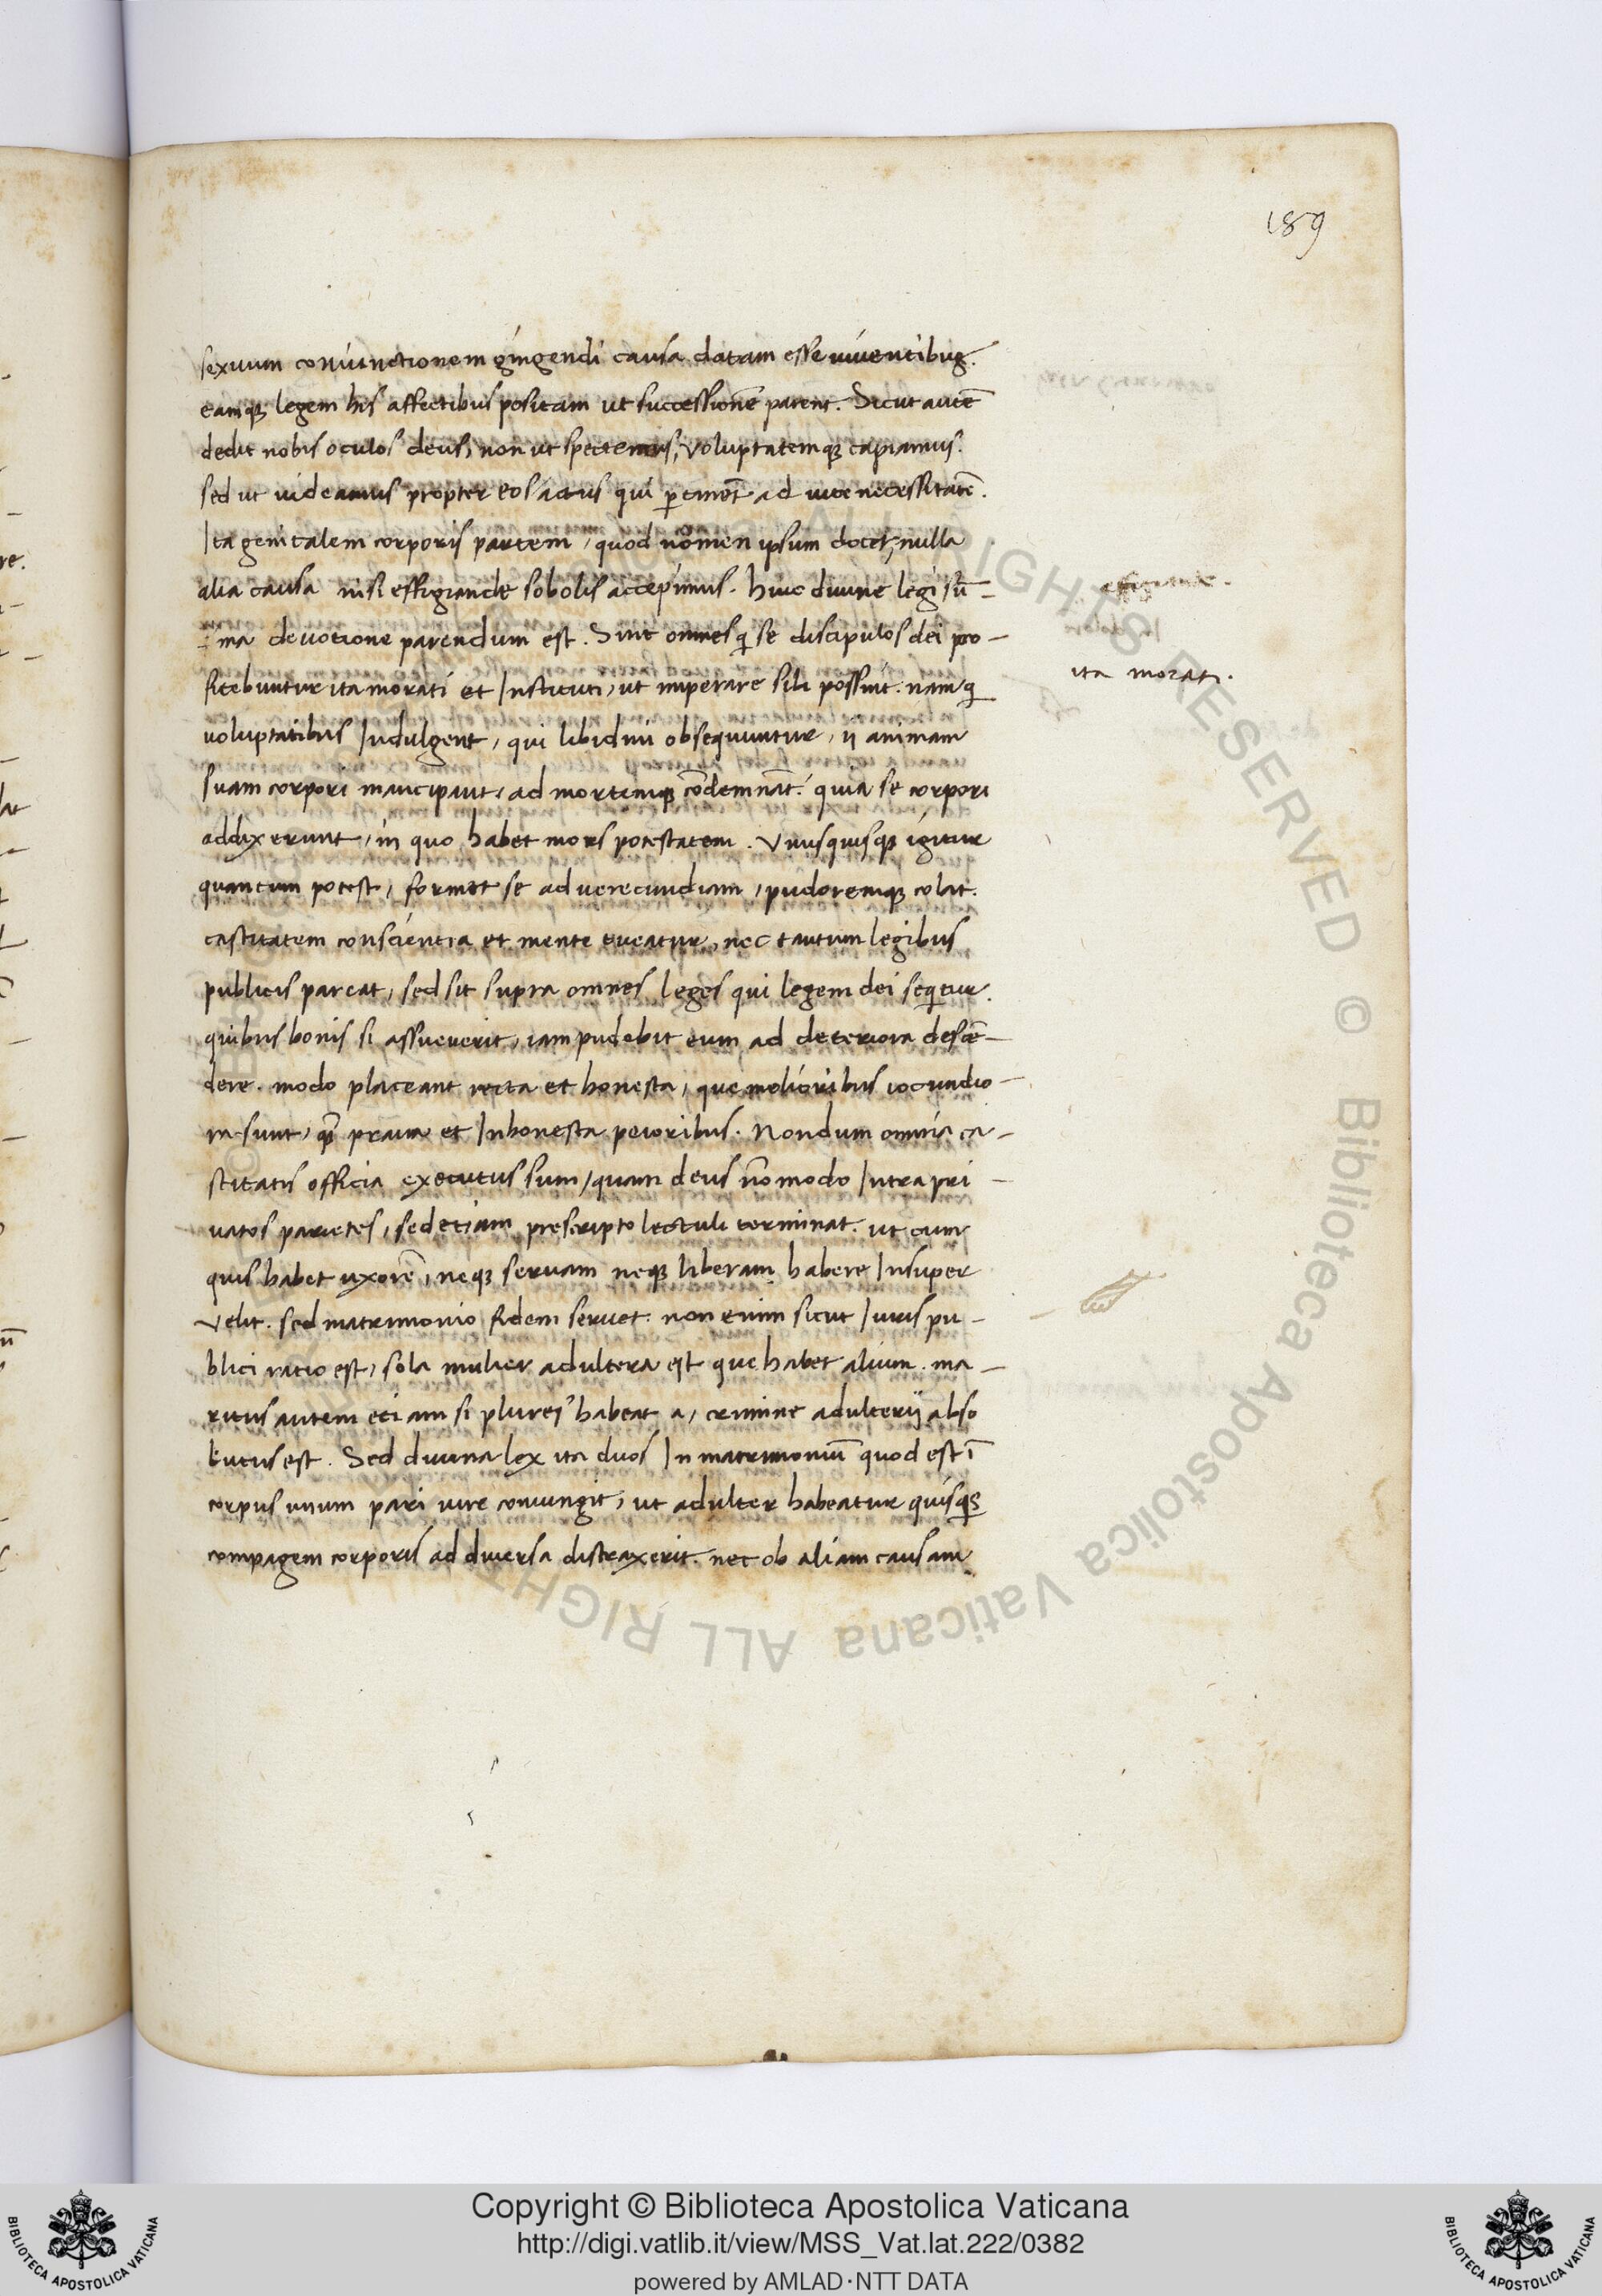 189
sexuum coniunctionem gingendi causa datam esse viventibus.
eamqȝ legem his affectibus positam ut successionē parent. Sicut autē
dedit nobis oculos deus, non ut spectemus, voluptatemqȝ capiamus.
sed ut videamus propter eos actus qui ꝑtinēt ad vite necessitatē.
Ita genitalem corporis partem, quod nomen ipsum docet, nulla
alia causa nisi effigiande sobolis accepimus. huic divine legi sū-
ma devotione parendum est. Sint omnes q se discipulos dei pro-
fitebuntur ita morati et Instituti, ut imperare sibi possint. nam q
voluptatibus Indulgent, qui libidini obsequuntur, ii animam
suam corpori mancipant, ad mortemqȝ cōdemnāt. quia se corpori
addixerunt, in quo habet mors potestatem. Unusquisqȝ igitur
quantum potest, formet se ad verecundiam, pudoremqȝ colat.
castitatem conscientia et mente tueatur, nec tantum legibus
publicis pareat, sed sit supra omnes leges qui legem dei seqitur.
quibus bonis si assueverit, iam pudebit eum ad deteriora descē-
dere. modo placeant recta et honesta, que melioribus iocundio-
ra sunt, q̄ prava et Inhonesta peioribus. Nondum omnia ca-
stitatis officia executus sum, quam deus nōmodo Intra pri-
vatos parietes, sed etiam prescripto lectuli terminat. ut cum
quis habet uxorē, neqȝ servam neqȝ liberam habere Insuper
velit. sed matrimonio fidem servet. non enim sicut Iuris pu-
blici ratio est, sola mulier adultera est que habet alium. ma-
ritus autem etiam si plures habeat a, crimine adulterij abso
lutus est. Sed divina lex ita duos In matrimoniū quod est ī
corpus unum pari iure coniungit, ut adulter habeatur quisqs
compagem corporis ad diversa distraxerit. nec ob aliam causam
ita morati.
Copyright © Biblioteca Apostolica Vaticana
http://digi.vatlib.it/view/MSS_Vat.lat.222/0382
powered by AMLAD·NTT DATA
BIBLIOTECA APOSTOLICA VATICANA
BIBLIOTECA APOSTOLICA VATICANA
ALL RIGHTS RESERVED © Biblioteca Apostolica Vaticana ALL RIGHT